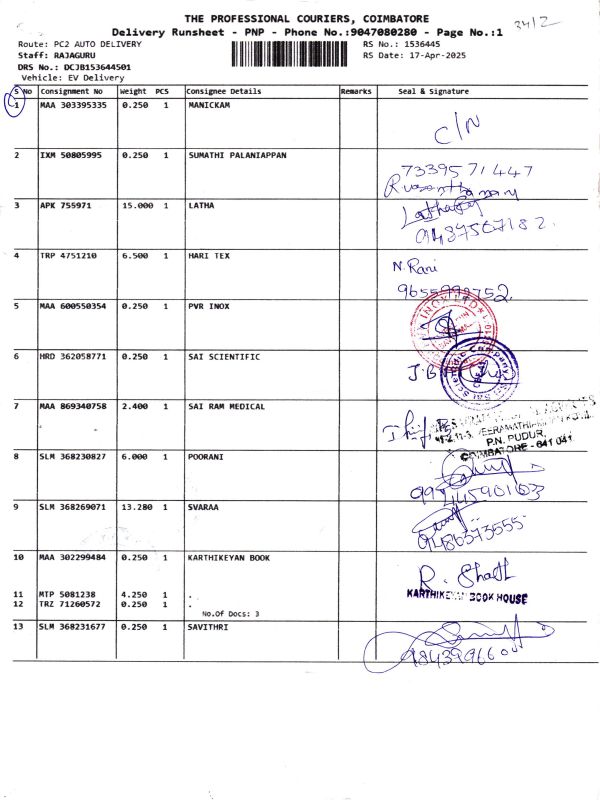 THE PROFESSIONAL COURIERS, COIMBATORE
3412
Delivery Runsheet - PNP - Phone No.:9047080280 - Page No.:1
Route: PC2 AUTO DELIVERY
RS No.: 1536445
Staff: RAJAGURU
RS Date: 17-Apr-2025
DRS No.: DCJB153644501
Vehicle: EV Delivery
S No Consignment No Weight PCS Consignee Details Remarks Seal & Signature
1 MAA 303395335 0.250 1 MANICKAM
C/N
2 IXM 50805995 0.250 1 SUMATHI PALANIAPPAN
7339571447
3 APK 755971 15.000 1 LATHA
Latha
9487567182.
4 TRP 4751210 6.500 1 HARI TEX
N. Rani
9655992752.
5 MAA 600550354 0.250 1 PVR INOX
6 HRD 362058771 0.250 1 SAI SCIENTIFIC
7 MAA 869340758 2.400 1 SAI RAM MEDICAL
P.N. PUDUR,
COIMBATORE - 641 041
8 SLM 368230827 6.000 1 POORANI
9 SLM 368269071 13.280 1 SVARAA
9486373555
10 MAA 302299484 0.250 1 KARTHIKEYAN BOOK
KARTHIKEYAN BOOK HOUSE
11 MTP 5081238 4.250 1 .
12 TRZ 71260572 0.250 1 .
No.Of Docs: 3
13 SLM 368231677 0.250 1 SAVITHRI